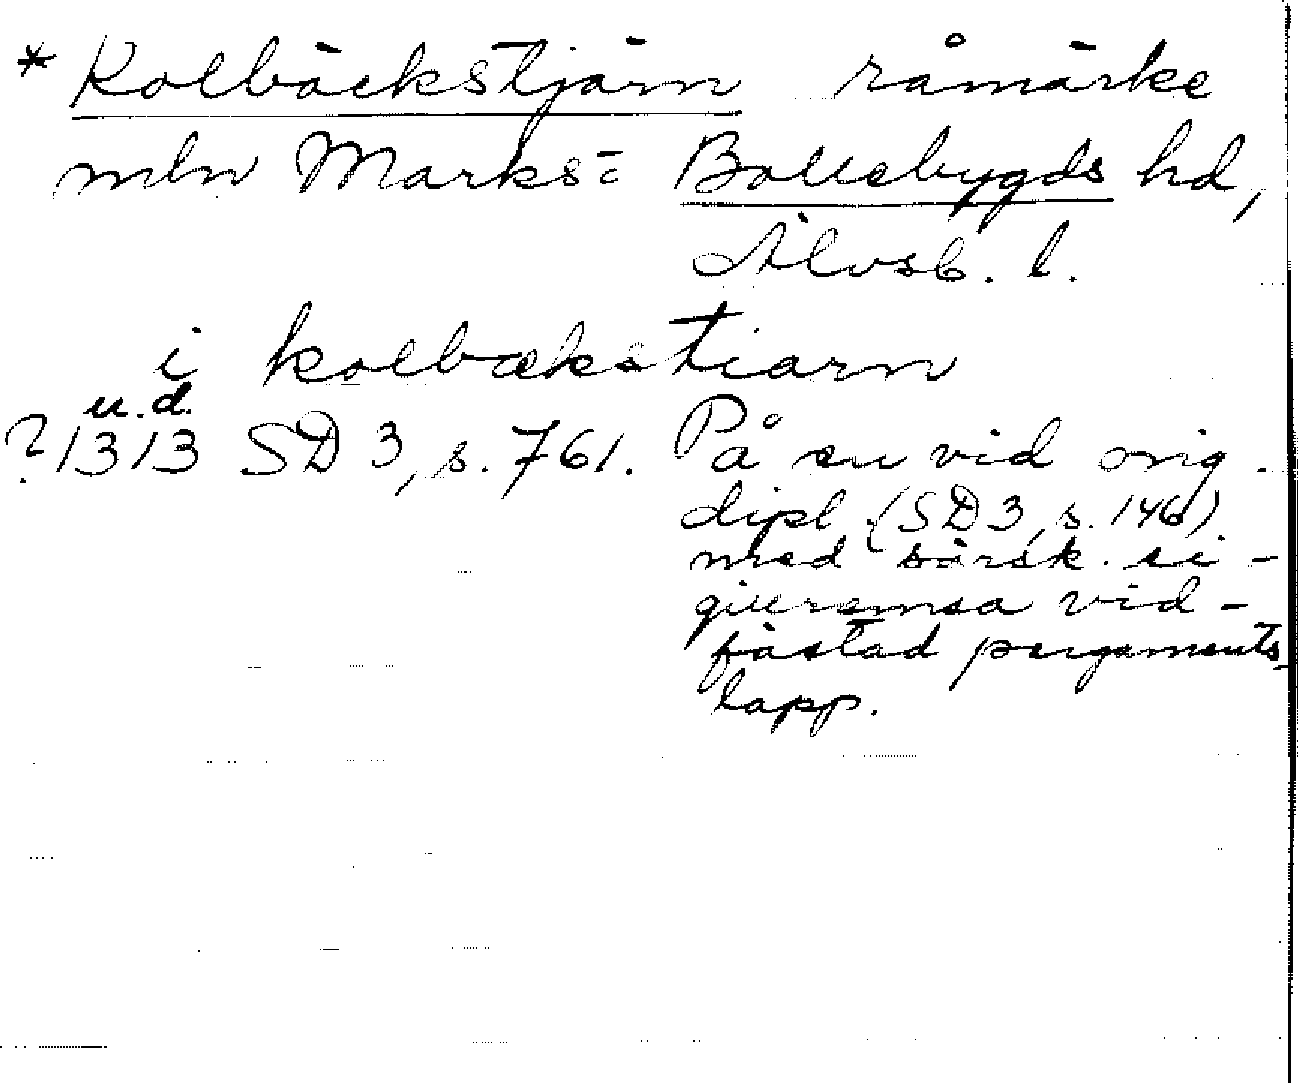 * Kolbäckstjärn råmärke
mln Marks= Bollebygds hd,
Älvsb. l.
i kolbækstiarn
u.d.
?1313 SD 3, s. 761. På en vid orig.
dipl (SD 3, s. 146)
med särsk. si-
gillremsa vid-
fästad pergaments
lapp.